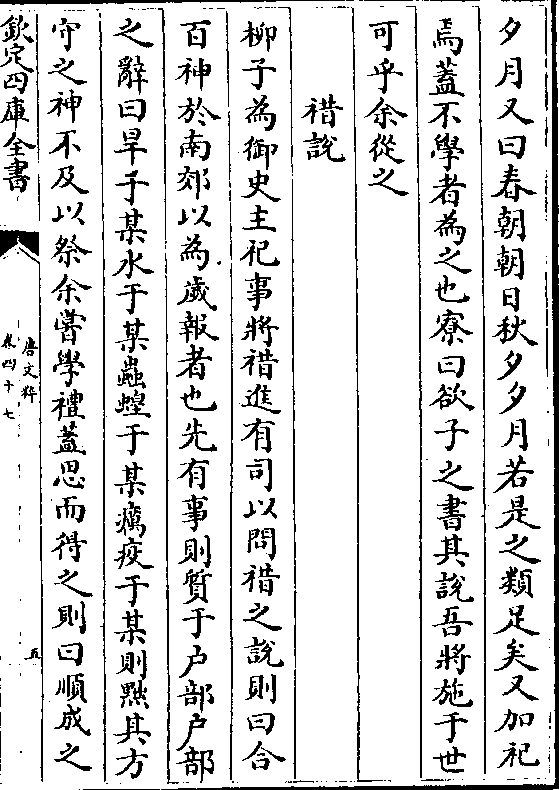 夕月又曰春朝朝日秋夕夕月若是之類足矣又加祀
焉蓋不學者為之也寮曰欲子之書其說吾將施于世
可乎余從之
禇說
柳子為御史主祀事將禇進有司以問禇之說則曰合
百神於南郊以為歲報者也先有事則質于户部户部
之辭曰旱于某水于某蟲蝗于某癘疫于某則黜其方
守之神不及以祭余嘗學禮蓋思而得之則曰順成之
欽定四庫全書
唐文粹
卷四十七
五